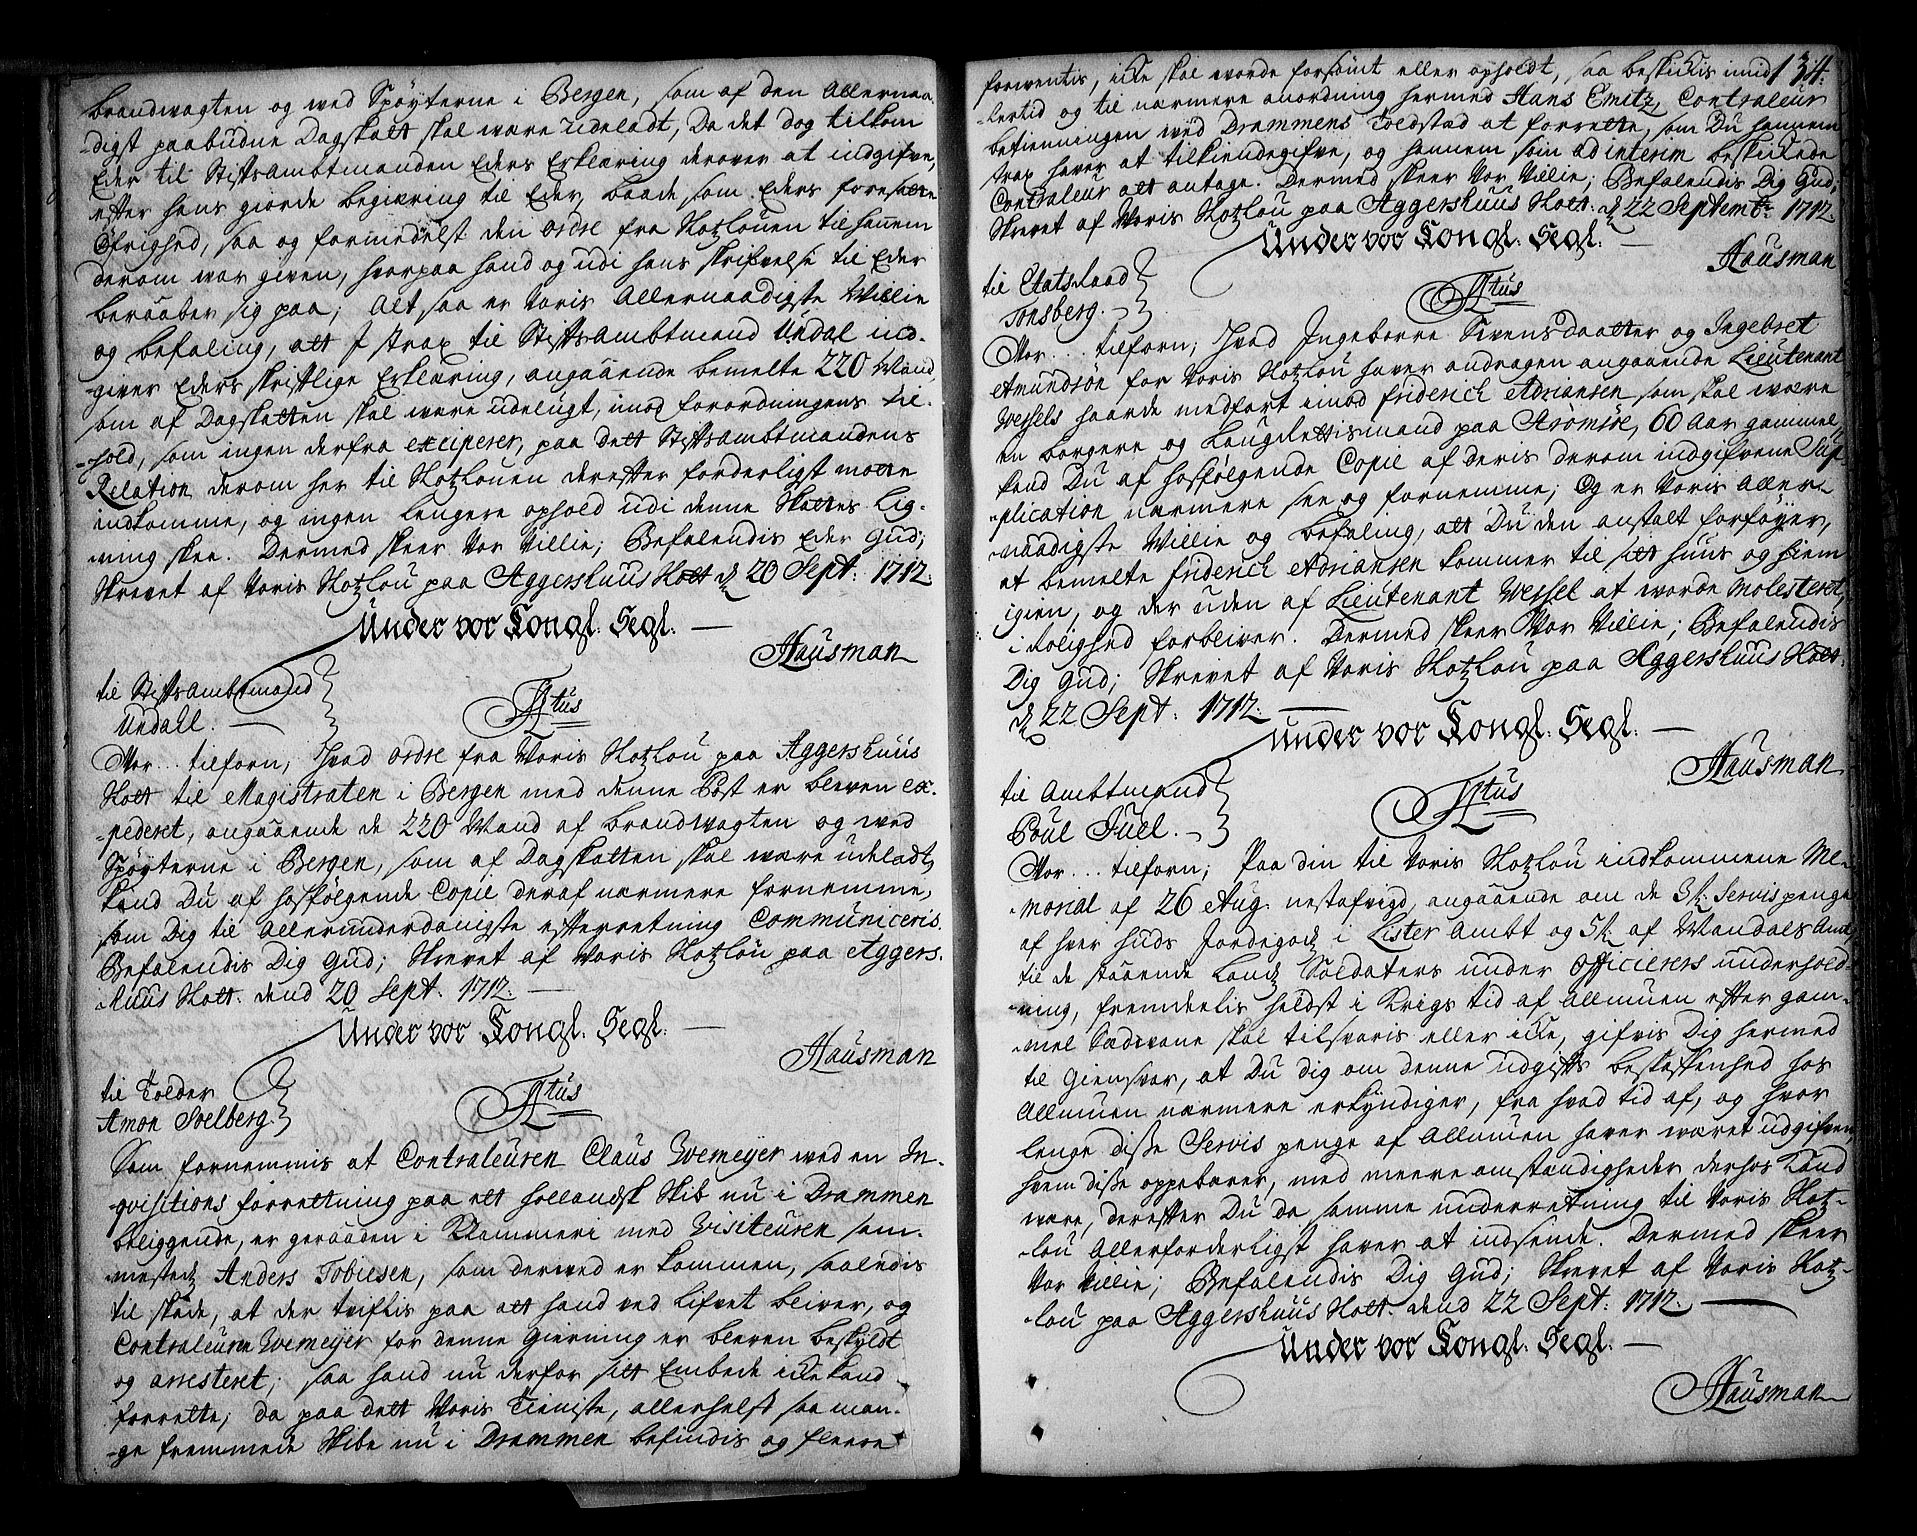 brandwagten og wed Spöyterne i Bergen, som af den Allernaa-
-digst paabudne Dagskatt skal wære udeladt, Da det dog tilkom
Eder til Stiftsambtmanden Eders Erklæring derover at indgifve,
efter hans giorde begiæring til Eder, baade som Eders foresatte
Öfrighed, saa og formedelst den ordre fra Slotzlouen til hannem
derom war given, hvorpaa hand og udi hans skrifvelse til Eder
beraaber sig paa; Alt saa er Voris Allernaadigste Willie
og befaling, att I strax til Stiftsambtmand Undal ind-
giver Eders skriftlige Erklæring, angaaende bemelte 220 Mand,
som af Dagskatten skal wære udelugt, imod forordningens til-
-hold, som ingen derfra exciperer, paa dett Stiftsambtmandens
Relation derom her til Slotzlouen derefter forderligst motte
indkomme, og ingen lengere ophold udi denne Skattes Lig-
-ning skee. Dermed skeer Vor Villie; Befalendis Eder Gud;
Skrevet af Voris Slotzlou paa Aggershuus Slott d. 20 Sept: 1712.
Under vor Kongl. Segl.
Hausman
til Stiftsambtmand
Undall.
Ltus
Vor... tilforn; Hvad ordre fra Voris Slotzlou paa Aggershuus
Slott til Magistraten i Bergen med denne Post er bleven ex-
-pederet, angaaende de 220 Mand af brandwagten og wed
Spöyterne i Bergen, som af Dagskatten skal wære udeladt,
kand Du af hosfölgende Copie deraf nærmere fornemme,
som Dig til allerunderdanigste efterretning Communiceris.
Befalendis Dig Gud; Skrevet af Voris Slotzlou paa Aggers-
-huus Slott. dend 20 Sept. 1712.
Under vor Kongl. Segl.
Hausman
til Tolder
Amon Svelberg.
Ltus
Som fornemmis at Contraleuren Claus Evemeyer wed en In-
-qvisitions forrettning paa ett hollandsk Skib nu i Drammen
beliggende, er geraaden i Klammeri med Visiteuren som-
mestedz Anders Tobiesen, som derved er kommen, saaledis
til skade, at der tviflis paa att hand ved Lifvet bliver, og
Contraleuren Evemeyer for denne Gierning er bleven beskyldt
og arresteret; saa hand nu derfor sitt Embede icke kand
forrette; da paa dett Voris Tieniste, allerhelst saa man-
-ge fremmede Skibe nu i Drammen befindis og fleere
134.
forwentis, icke skal worde forsömt eller opholdt, saa beskickis imid-
-lertid og til nærmere anordning hermed Hans Emitz, Contraleur
betienningen wed Drammens Toldstad at forrette, som Du hannem
strax haver at tilkiendegifve, og hannem som ad interim beskickede
Contraleur att antage. Dermed skeer Vor Villie; Befalendis Dig Gud;
Skrevet af Voris Slotzlou paa Aggershuus Slott. d. 22 Septembr: 1712.
Under vor Kongl. Segl.
Hausman
til Etatsraad
Tonsberg.
Ltus
Vor... tilforn; Hvad Ingeborre Sivensdaatter og Ingebret
Amundsön for Voris Slotzlou haver andragen angaaende Lieutenant
Wessels haarde medfart imod friderich Adriansen som skal wære
en borgere og Laugrettismand paa Strömsöe, 60 Aar gammel,
kand Du af hosfölgende Copie af deris derom indgifvene Sup-
-plication nærmere see og fornemme; Og er Voris Aller-
-naadigste Willie og befaling, att Du den anstalt forföyer,
at bemelte friderich Adriansen kommer til sitt huus og hiem
igien, og der uden af Lieutenant Wessel at worde molesteret,
i Rolighed forbliver. Dermed skeer Vor Villie; Befalendis
Dig Gud; Skrevet af Voris Slotzlou paa Aggershuus Slott.
d. 22 Sept. 1712.
Under vor Kongl. Segl.
Hausman
til Ambtmand
Poul Juell.
Ltus
Vor... tilforn; Paa din til Voris Slotzlou indkommene Me-
-morial af 26 Aug. nestafvigd, angaaende om de 3 s. Servis penge
af hver huds Jordegodz i Lister Ambt og 5 s. af Mandals Amt,
til de staaende Landz Soldaters under Officierers underhold-
ning, fremdeelis heldst i Krigs tid af Allmuen efter gam-
-mel Sædvane skal tilsvaris eller icke, gifvis Dig hermed
til Giensvar, at Du dig om denne udgifts beskaffenhed hos
Allmuen nærmere erkyndiger, fra hvad tid af, og hvor
lenge diße Servis penge af Allmuen haver wæret udgifven,
hvem diße oppebærer, med meere omstændigheder derhos kand
wære, derefter Du da samme underretning til Voris Slotz-
-lou Allerforderligst haver at indsende. Dermed skeer
Vor Villie; Befalendis Dig Gud; Skrevet af Voris Slotz-
-lou paa Aggershuus Slott. dend 22 Sept: 1712.
Under vor Kongl. Segl.
Hausman